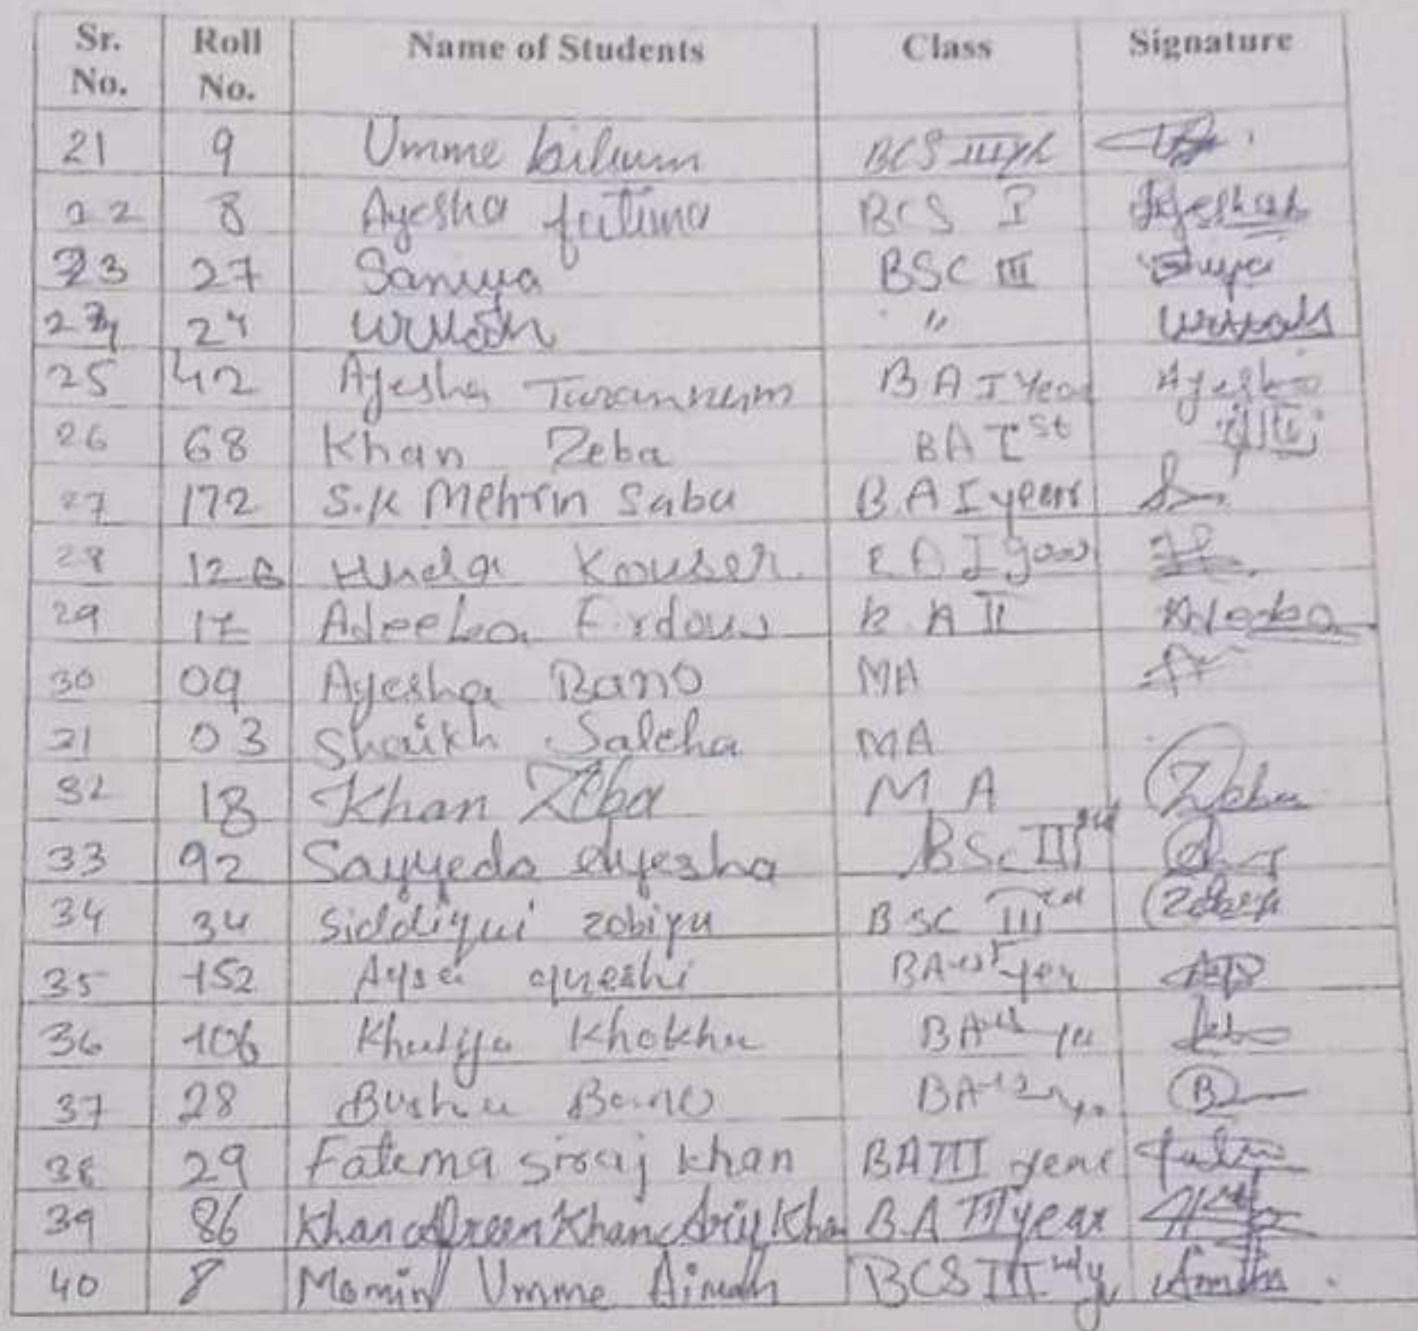 Sr. No. Roll No. Name of Students Class Signature
21 9 Umme BCS III yr
22 8 Ayesha fatima BCS I Ayesha
23 27 Saniya BSC III
24 24 "
25 42 Ayesha Tarannum BA I Year Ayesha
26 68 Khan Zeba BA I st
27 172 S.K Mehrin Saba B.A I year
28 128 Huda Kouser B A I year
29 17 Adeeba Firdous B A II Adeeba
30 09 Ayesha Bano MA
31 03 Shaikh Saleha MA
32 18 Khan Zeba M A Zeba
33 92 Sayyeda Ayesha BSc III rd
34 34 Siddiqui zobiya BSC III rd
35 152 Aysa queshi BA 1st yer
36 106 Khatija Khokha BA
37 28 Bushu Bano BA B
38 29 Fatema siraj khan BA III year
39 86 Khan Afreen Khan Arif Kha B.A III year
40 8 Momin Umme Aiman BCS III rd y